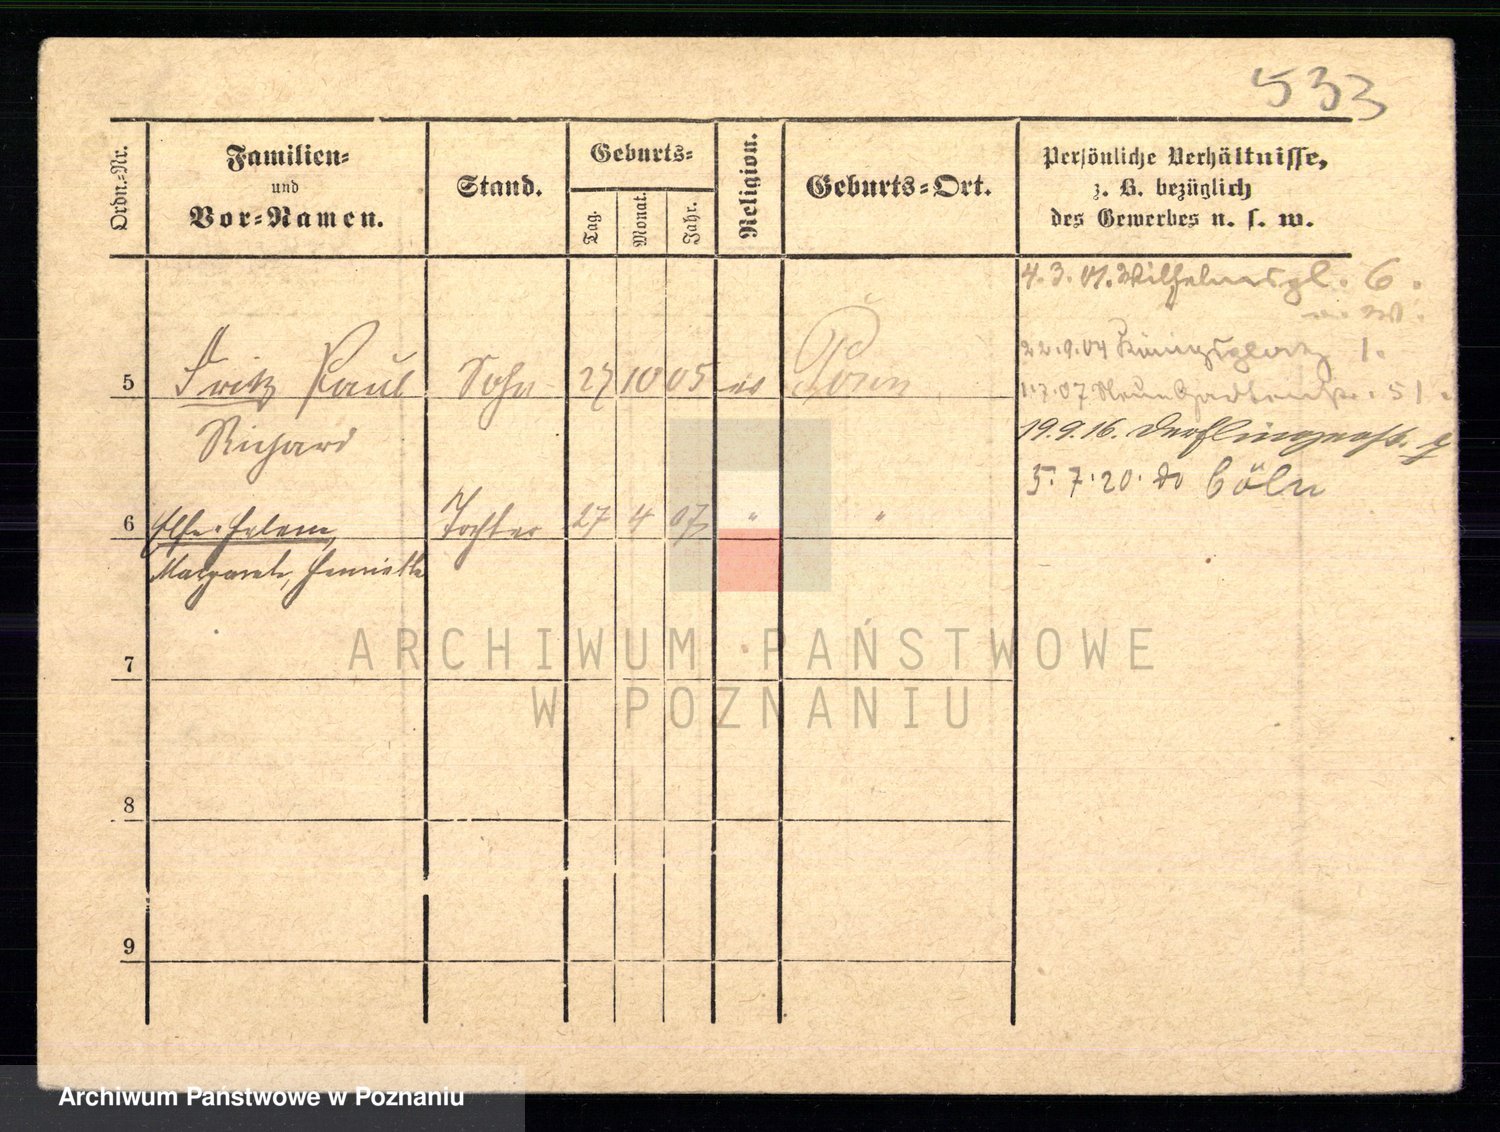 533
Ordn.-Nr.
Familien-
und
Vor-Namen.
Stand.
Geburts-
Tag.
Monat.
Jahr.
Religion.
Geburts-Ort.
Persönliche Verhältnisse,
z. B. bezüglich
des Gewerbes u. s. w.
4.3.01. Wilhelmspl. 6.
22.9.04 Königsplatz 1.
5 Fritz Paul Sohn 27 10 05 Posen
1.7.07 Neue Gartenstr. 51.
Richard
19.9.16. Derflingerstr.
5.7.20. Cöln
6 Else Helene, Tochter 27 4 07 " "
Margarete, Henriette
7
8
9
ARCHIWUM PAŃSTWOWE
W POZNANIU
Archiwum Państwowe w Poznaniu